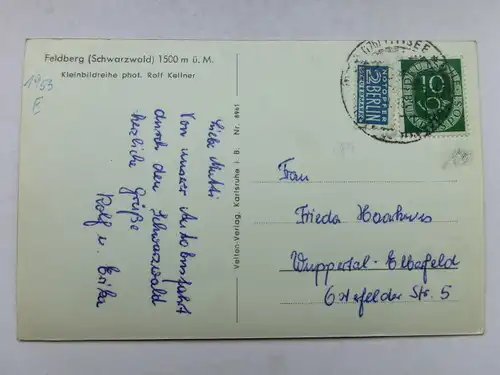 Feldberg (Schwarzwald) 1500 m ü. M.
Kleinbildreihe phot. Rolf Kellner
1953
E
Liebe Mutti
Von unser Autobusfahrt
durch den Schwarzwald
herzliche Grüße
Rolf u. Erika
Vetten-Verlag, Karlsruhe i. B. Nr. 4961
NOTOPFER
2 BERLIN
STEUERMARKE
10
DEUTSCHE
TITISEE
Frau
Frieda
Wuppertal-Elberfeld
Str. 5